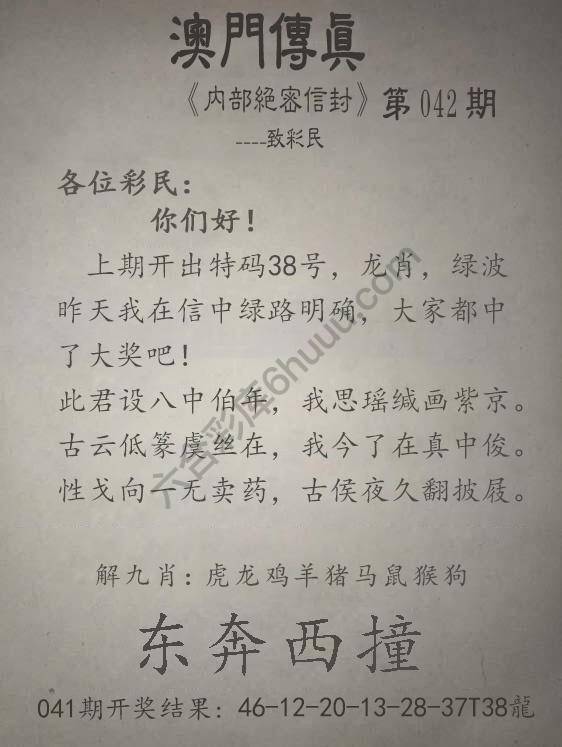 澳門傳眞
《内部絕密信封》第042期
----致彩民
各位彩民：
你们好！
上期开出特码38号，龙肖，绿波
昨天我在信中绿路明确，大家都中
了大奖吧！
此君设八中伯年，我思瑶缄画紫京。
古云低篆虞丝在，我今了在真中俊。
性戈向一无卖药，古侯夜久翻披屐。
解九肖：虎龙鸡羊猪马鼠猴狗
东奔西撞
041期开奖结果：46-12-20-13-28-37T38龍
六合彩库6huuu.com